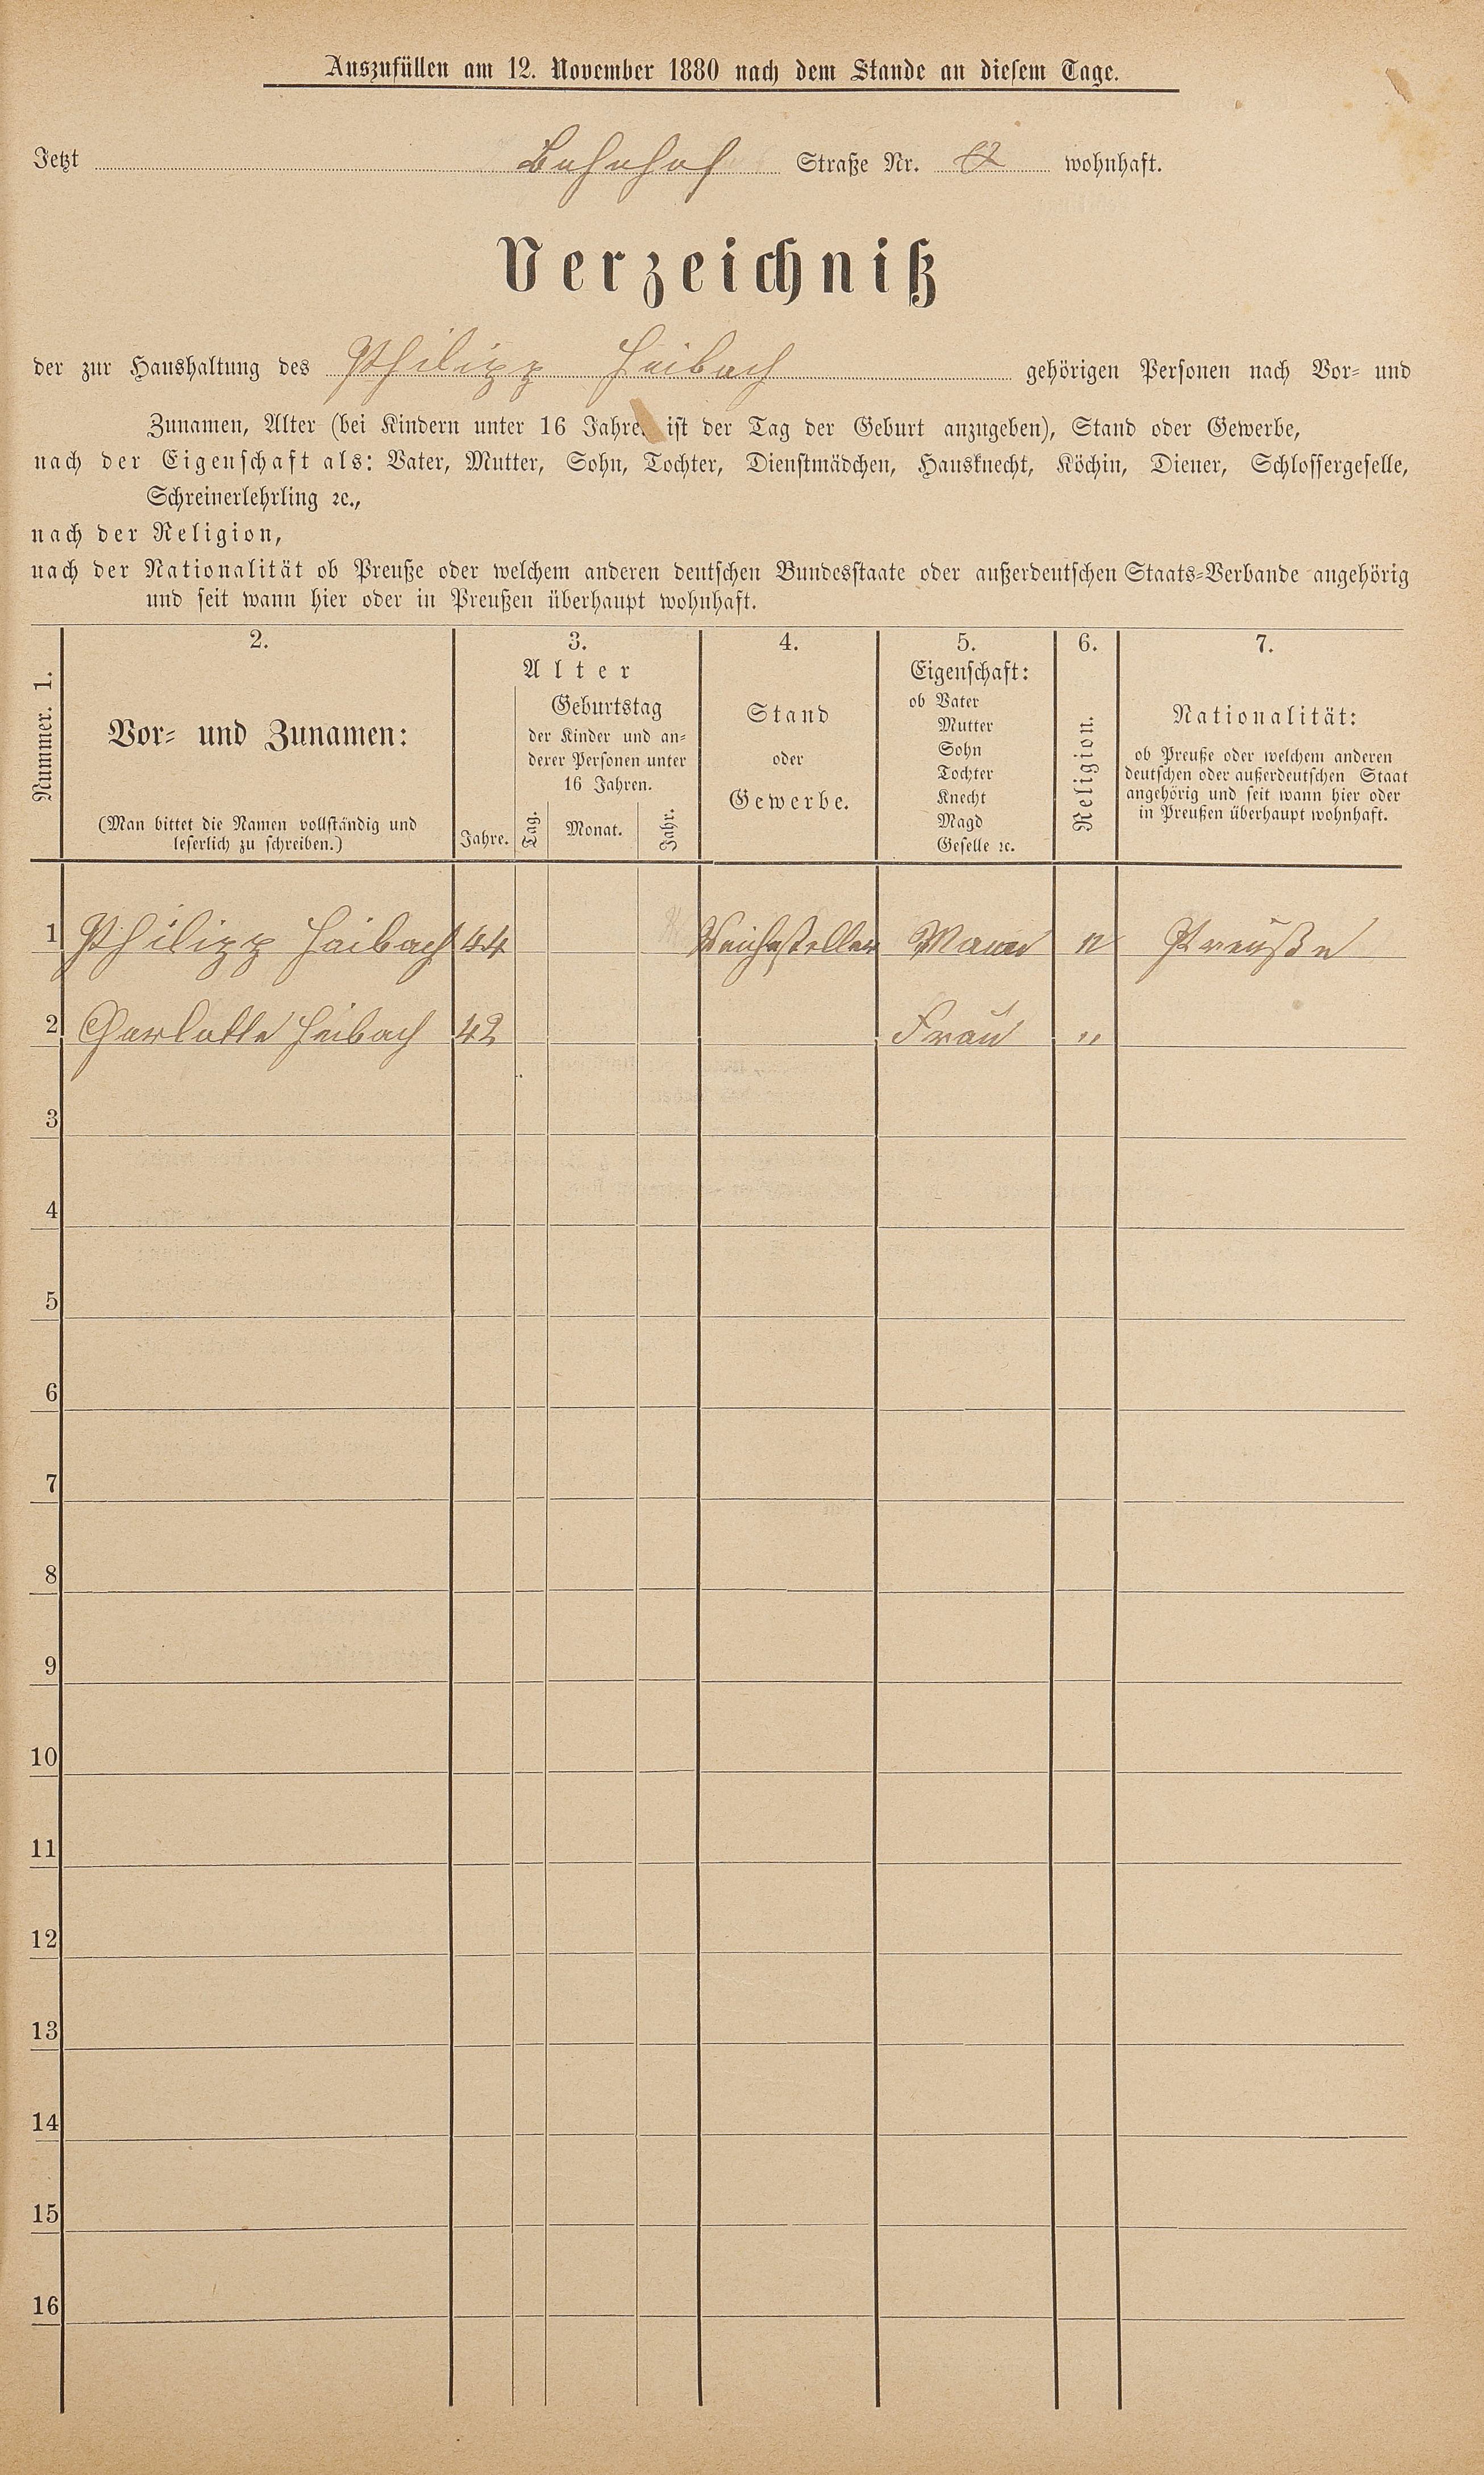 Auszufüllen am 12. November 1880 nach dem Stande an diesem Tage.
Jetzt Bahnhof Straße Nr. wohnhaft.
Verzeichniß
der zur Haushaltung des Philipp Heibach gehörigen Personen nach Vor- und
Zunamen, Alter (bei Kindern unter 16 Jahre. ist der Tag der Geburt anzugeben), Stand oder Gewerbe,
nach der Eigenschaft als: Vater, Mutter, Sohn, Tochter, Dienstmädchen, Hausknecht, Köchin, Diener, Schlossergeselle,
Schreinerlehrling ꝛc.,
nach der Religion,
nach der Nationalität ob Preuße oder welchem anderen deutschen Bundesstaate oder außerdeutschen Staats-Verbande angehörig
und seit wann hier oder in Preußen überhaupt wohnhaft.
Nummer. 1.
2.
Vor- und Zunamen:
(Man bittet die Namen vollständig und
leserlich zu schreiben.)
3.
Alter
Geburtstag
der Kinder und an-
derer Personen unter
16 Jahren.
Jahre. Tag. Monat. Jahr.
4.
Stand
oder
Gewerbe.
5.
Eigenschaft:
ob Vater
Mutter
Sohn
Tochter
Knecht
Magd
Geselle ꝛc.
6.
Religion.
7.
Nationalität:
ob Preuße oder welchem anderen
deutschen oder außerdeutschen Staat
angehörig und seit wann hier oder
in Preußen überhaupt wohnhaft.
1 Philipp Haibach 44 Weichesteller Mann Preuße
2 Charlotte Heibach 42 Frau "
3
4
5
6
7
8
9
10
11
12
13
14
15
16